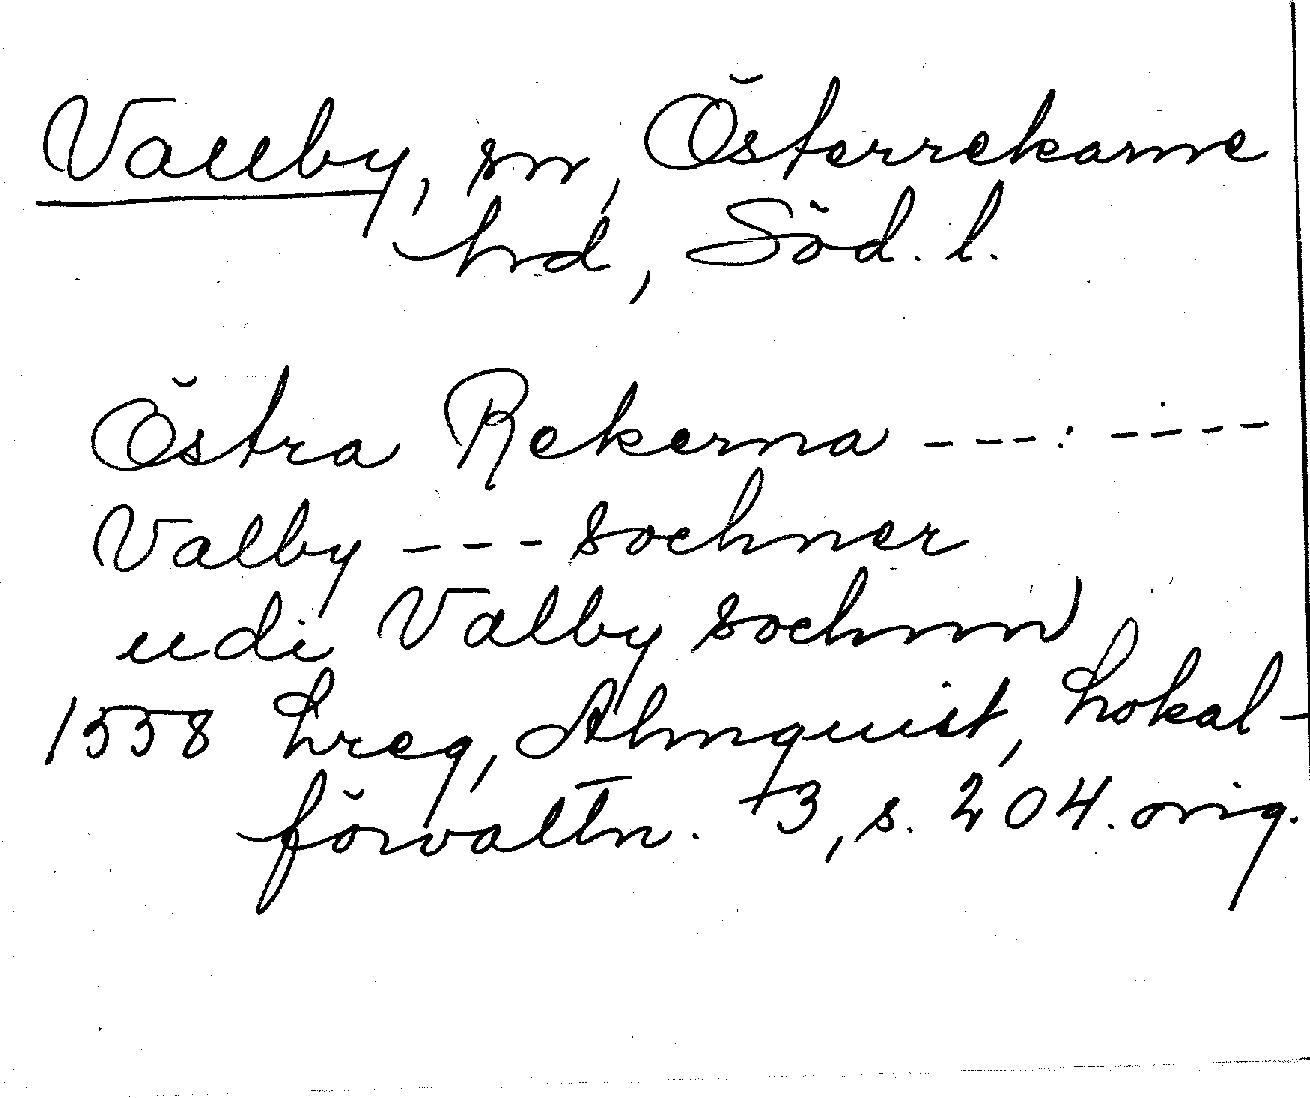 Vallby, sn, Österrekarne
hrd, Söd. l.
Östra Rekerna ---: ----
Valby --- sochner
udi Valby sochnn
1558 Lreg, Almquist, Lokal-
förvaltn. +3, s. 204. orig.